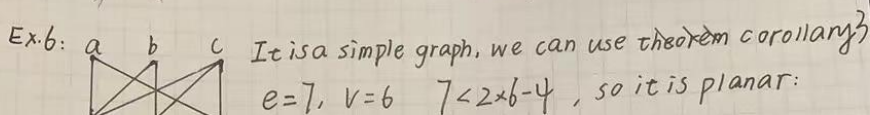 Ex.6: a b c It is a simple graph, we can use theorem corollary3
e=7, v=6 7<2×6-4, so it is planar: